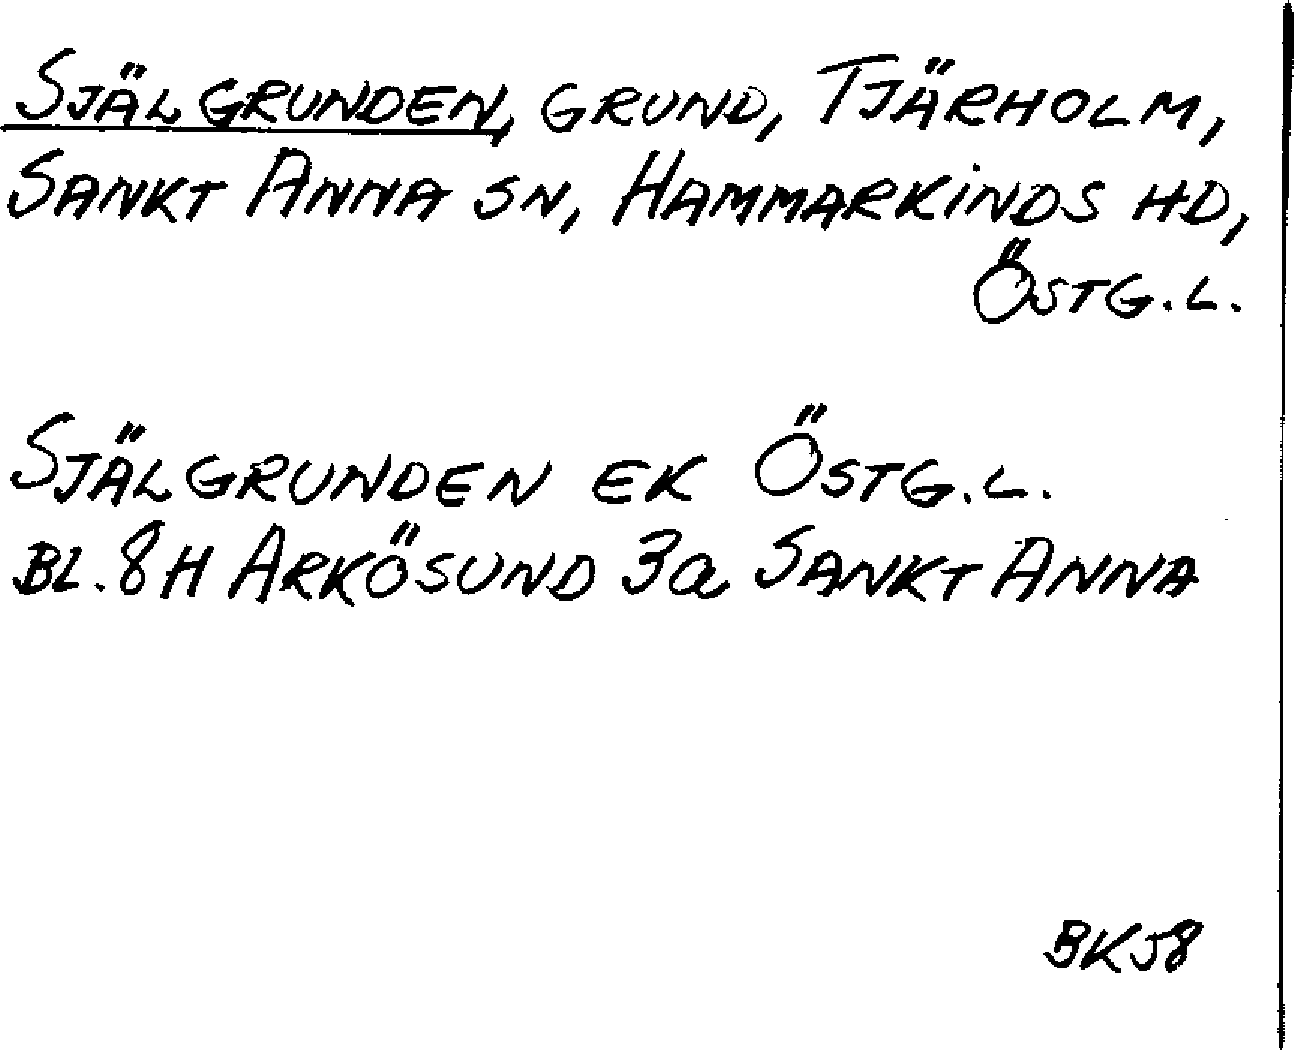 SJÄLGRUNDEN, GRUND, TJÄRHOLM,
SANKT ANNA SN, HAMMARKINDS HD,
ÖSTG.L.
SJÄLGRUNDEN EK ÖSTG.L.
BL. 8H ARKÖSUND 3a SANKT ANNA
BKJ8